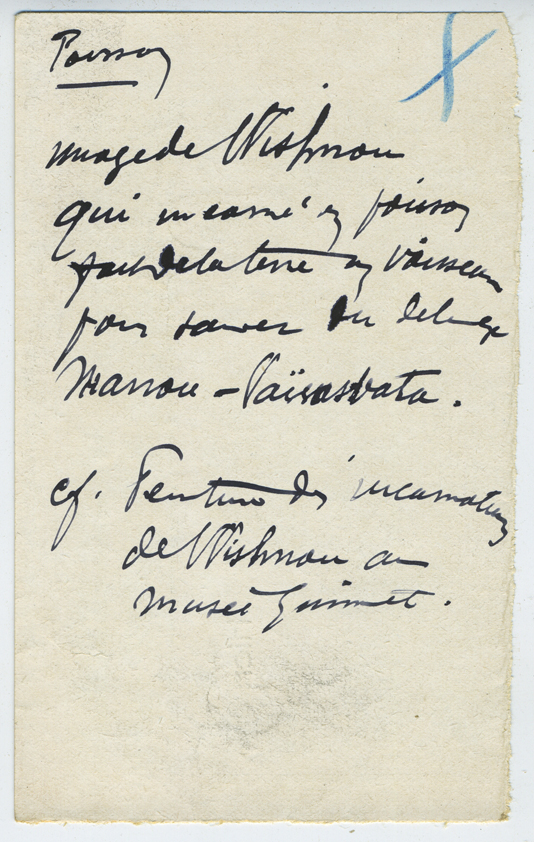 Poisson
image de Wishnou
qui incarné en poisson
fait de la terre un vaisseau
pour sauver du deluge
Manou - Vaïvasvata.
cf. Peinture des incarnations
de Wishnou au
musée Guimet.